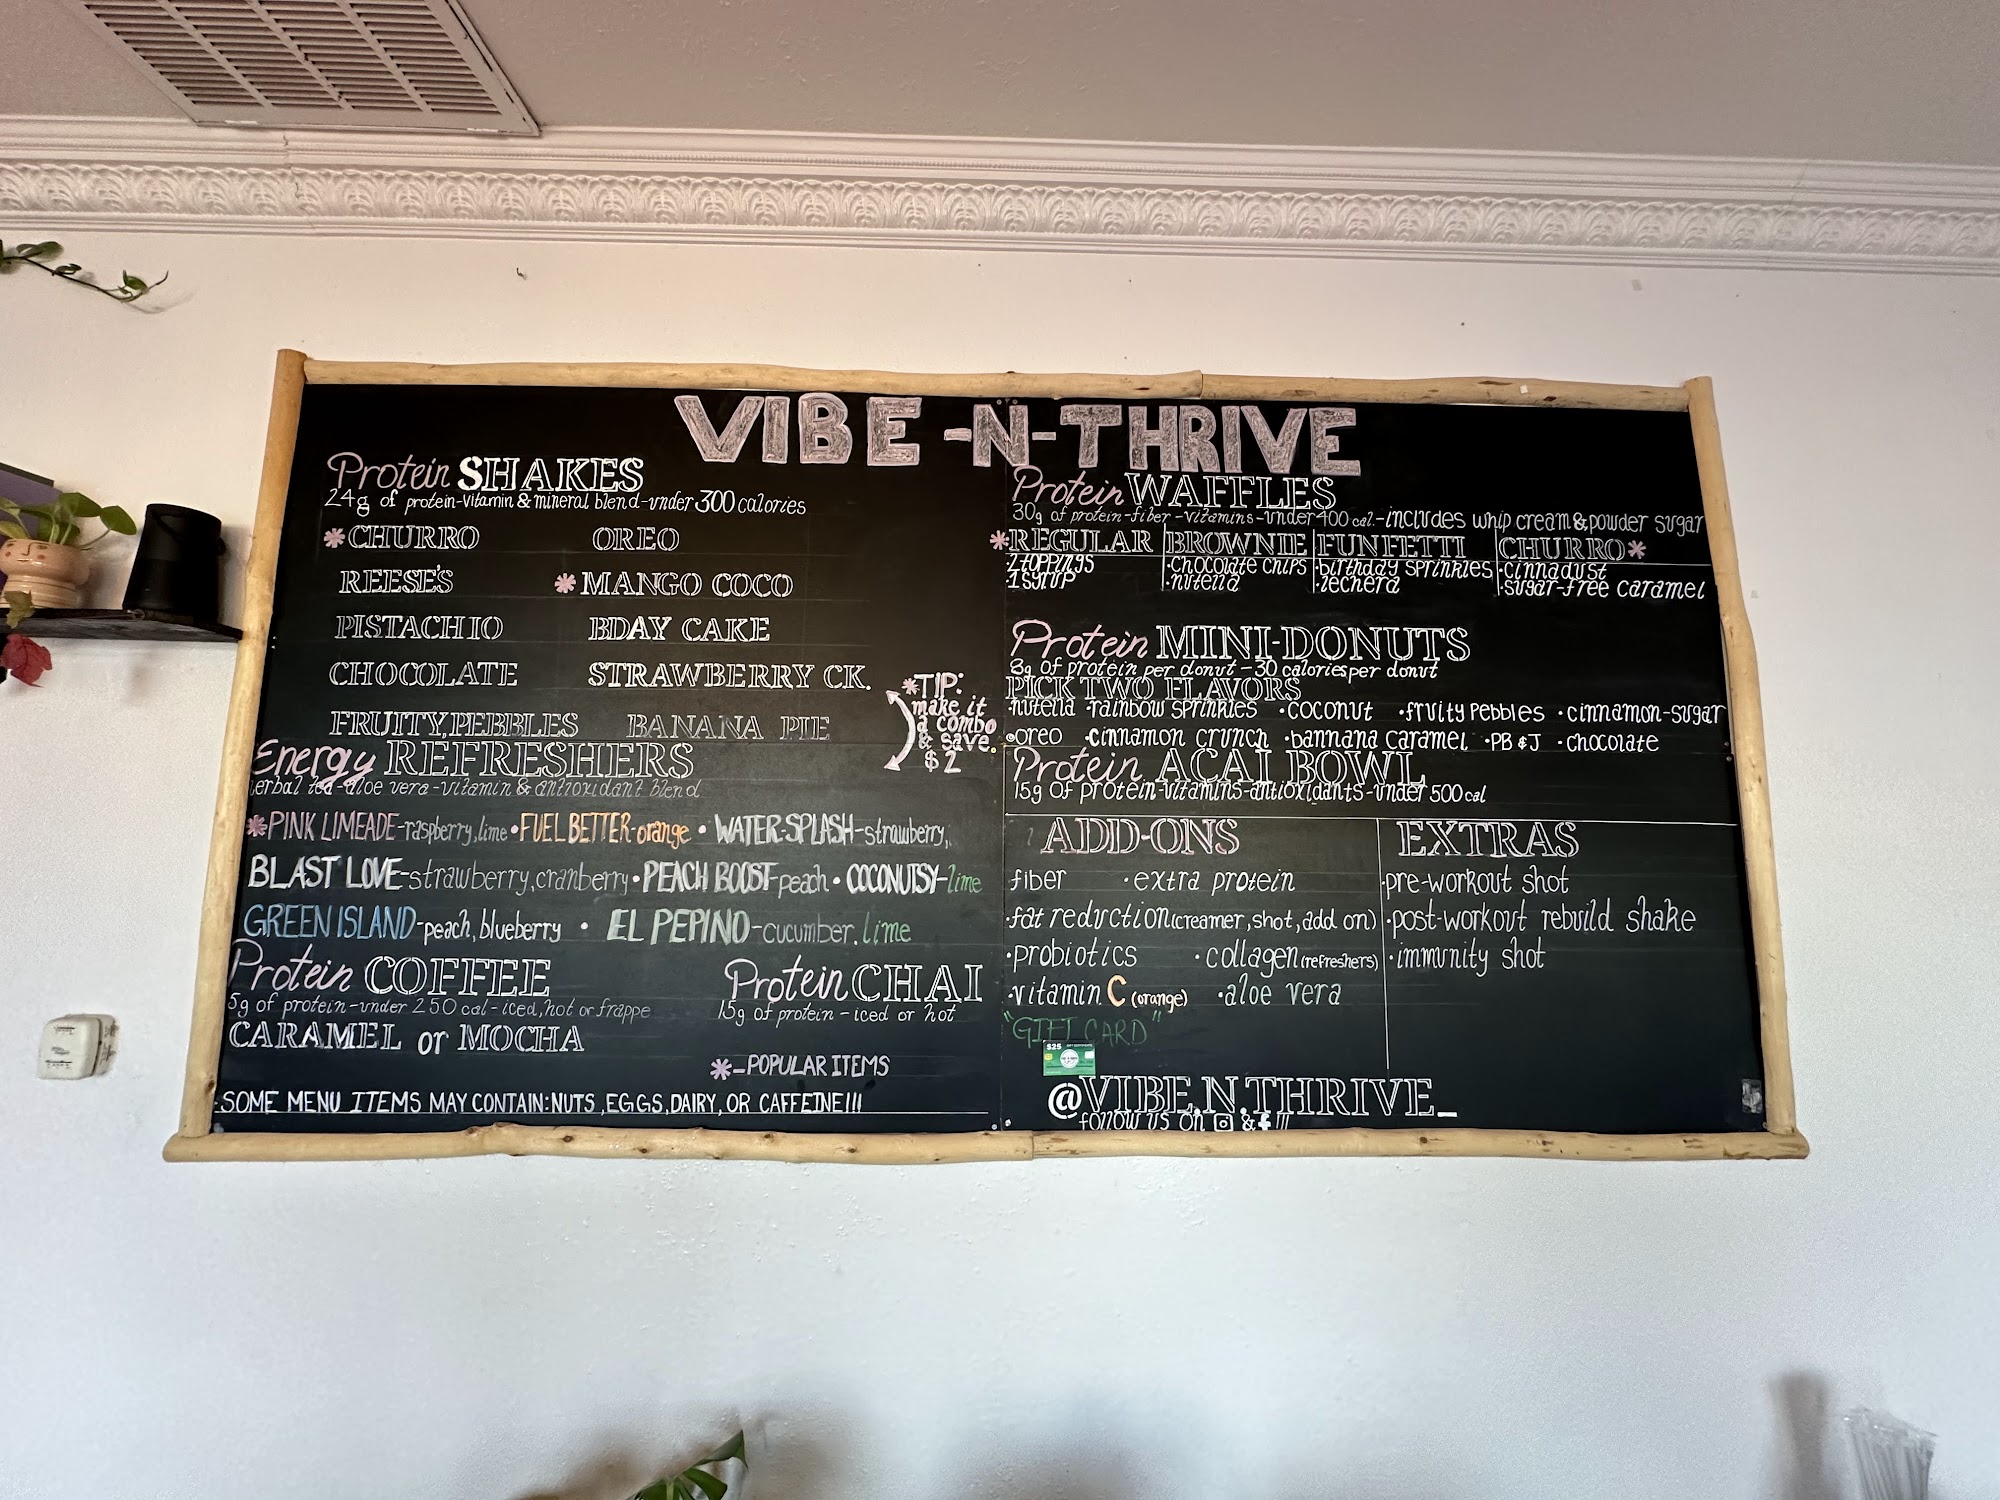 VIBE-N-THRIVE
Protein SHAKES
24g of protein-vitamin & mineral blend-under 300 calories
*CHURRO OREO
REESE'S *MANGO COCO
PISTACHIO BDAY CAKE
CHOCOLATE STRAWBERRY CK.
FRUITY PEBBLES BANANA PIE
*TIP:
make it
a combo
& save
$2
Energy REFRESHERS
herbal tea-aloe vera-vitamin & antioxidant blend
*PINK LIMEADE-raspberry, lime • FUEL BETTER-orange • WATER-SPLASH-strawberry,
BLAST LOVE-strawberry, cranberry • PEACH BOOST-peach • COCONUTSY-lime
GREEN ISLAND-peach, blueberry • EL PEPINO-cucumber, lime
Protein COFFEE
5g of protein-under 250 cal-iced, hot or frappe
CARAMEL or MOCHA
Protein CHAI
15g of protein - iced or hot
*-POPULAR ITEMS
SOME MENU ITEMS MAY CONTAIN: NUTS, EGGS, DAIRY, OR CAFFEINE!!!
Protein WAFFLES
30g of protein-fiber-vitamins-under 400 cal.-includes whip cream & powder sugar
*REGULAR BROWNIE FUNFETTI CHURRO*
•2 TOPPINGS •chocolate chips •birthday sprinkles •cinnadust
•1 SYRUP •nutella •lechera •sugar-free caramel
Protein MINI-DONUTS
8g of protein per donut - 30 calories per donut
PICK TWO FLAVORS
•nutella •rainbow sprinkles •coconut •fruity pebbles •cinnamon-sugar
•oreo •cinnamon crunch •bannana caramel •PB & J •chocolate
Protein ACAI BOWL
15g of protein-vitamins-antioxidants-under 500 cal
ADD-ONS
fiber •extra protein
•fat reduction (creamer, shot, add on)
•probiotics •collagen (refreshers)
•vitamin C (orange) •aloe vera
"GIFT CARD"
$25
EXTRAS
•pre-workout shot
•post-workout rebuild shake
•immunity shot
@VIBE.N.THRIVE_
follow us on & f !!!